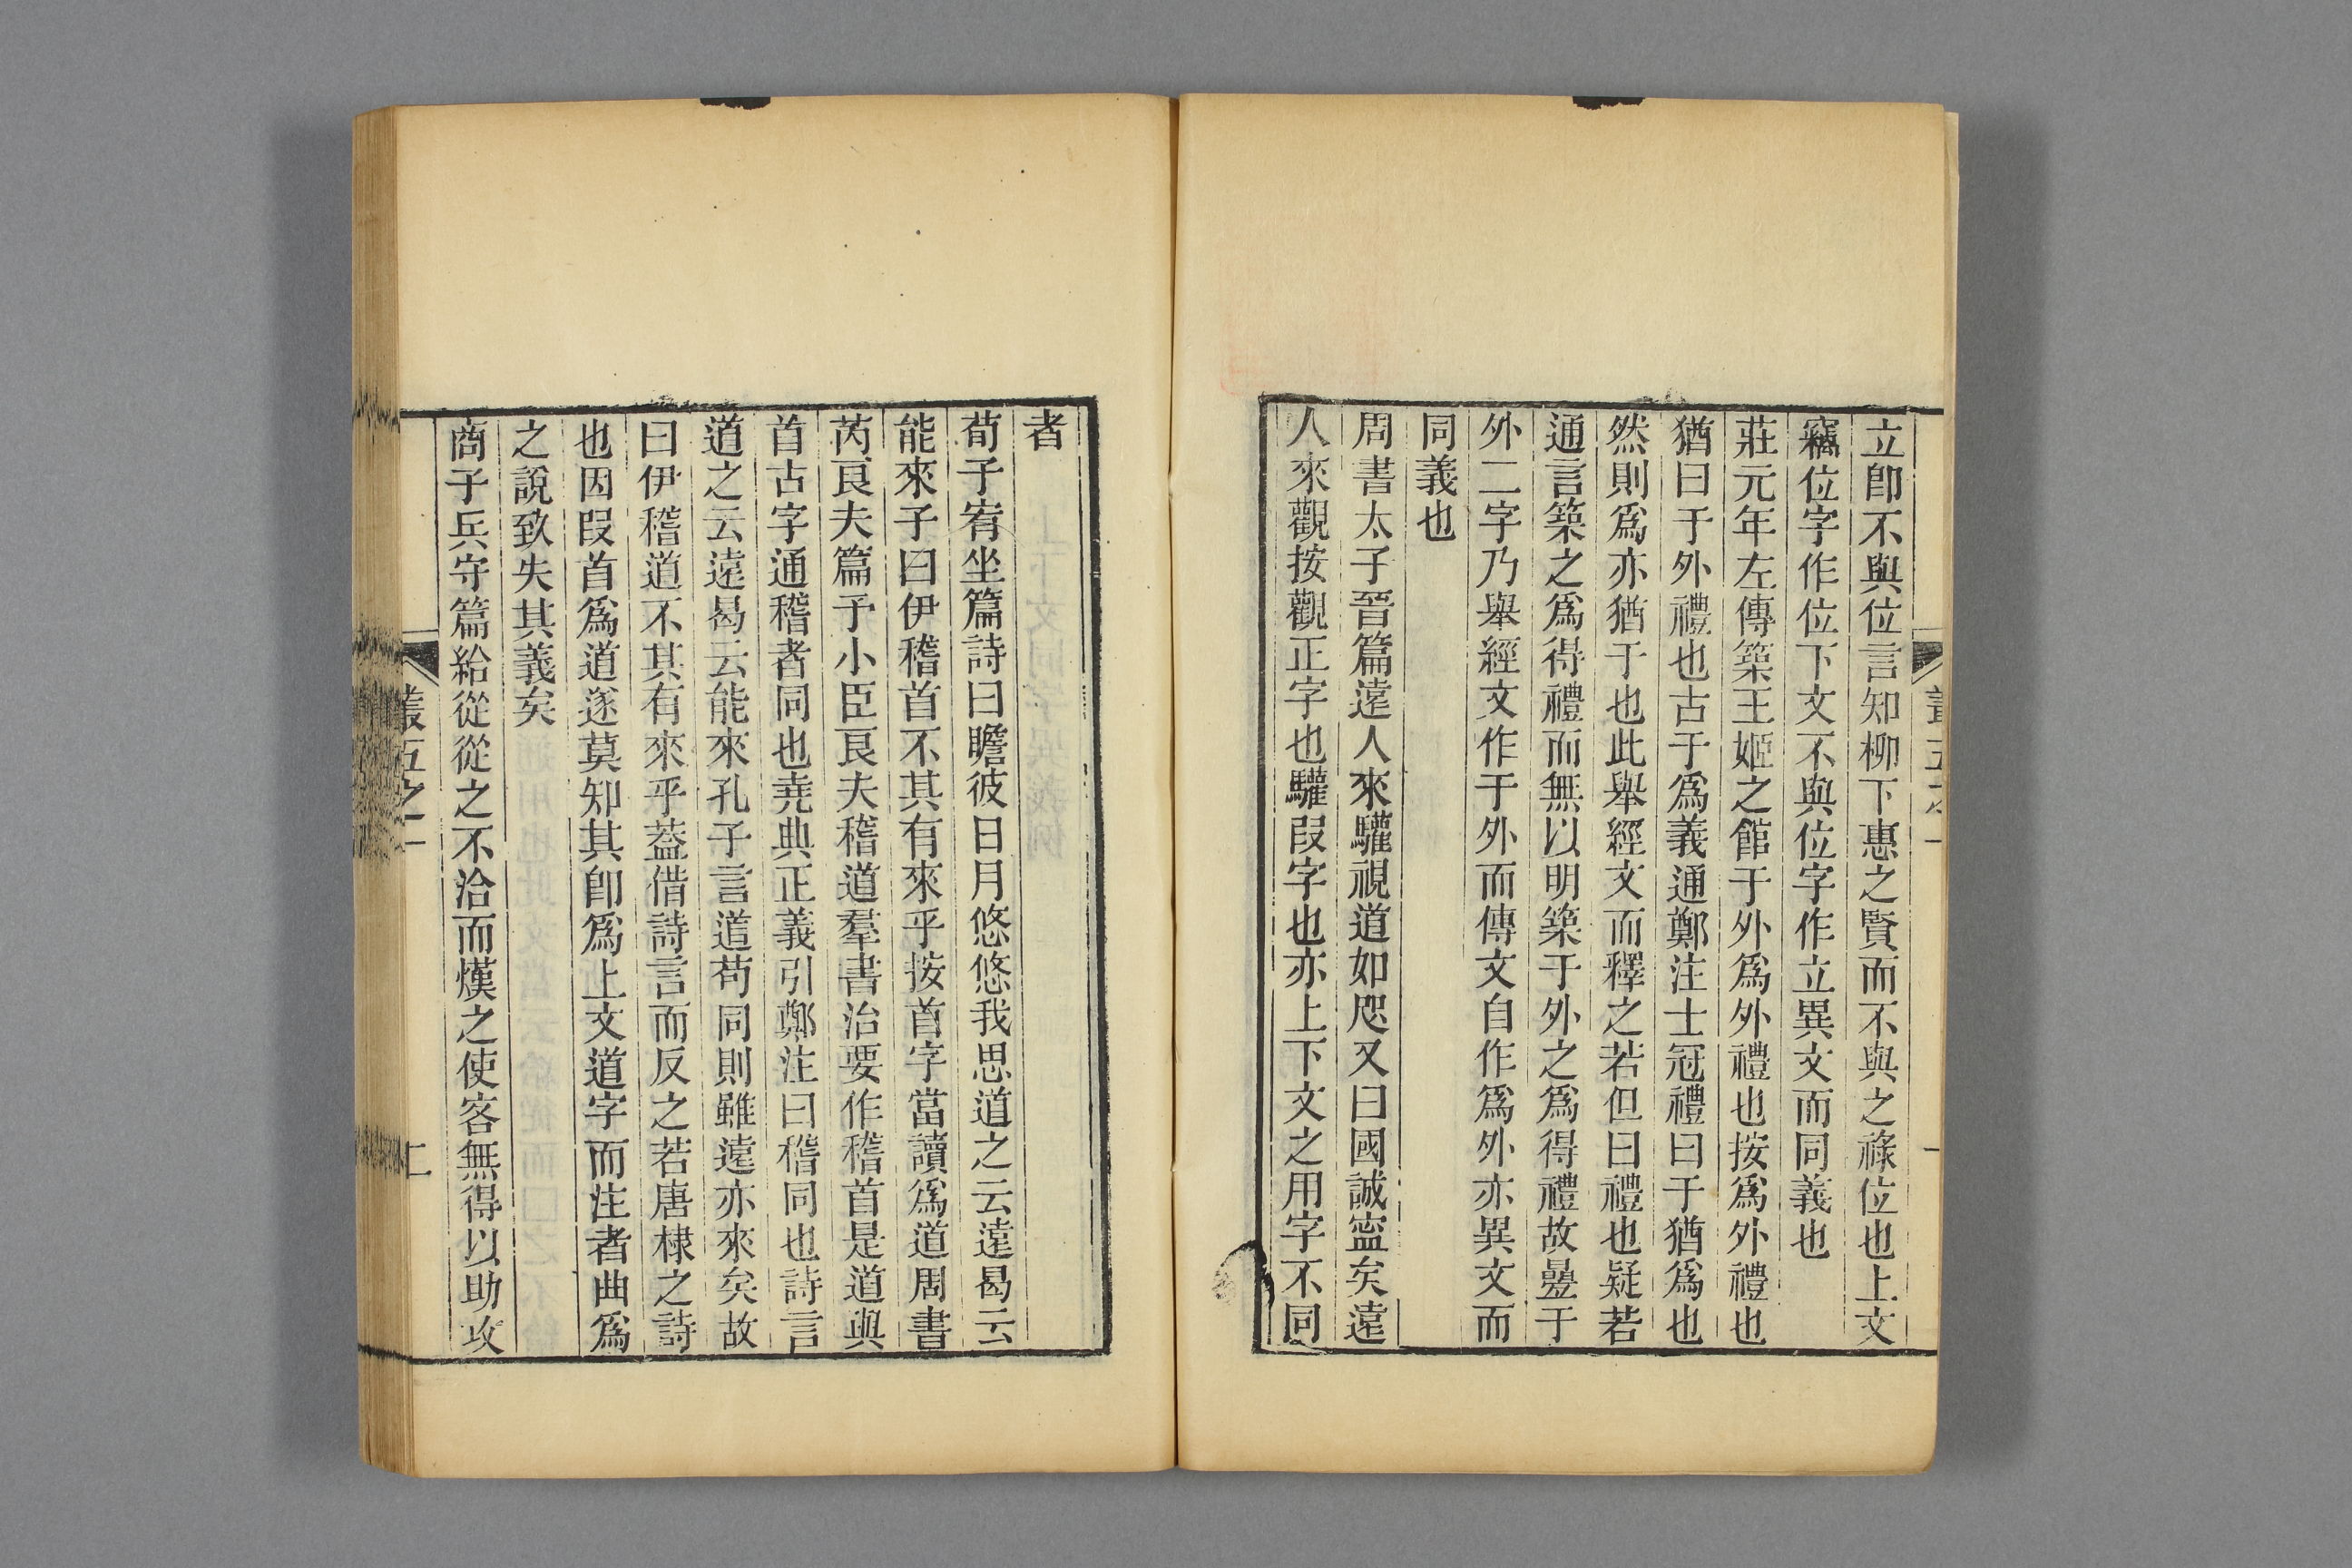 立卽不與位言知柳下惠之賢而不與之祿位也上文
竊位字作位下文不與位字作立異文而同義也
莊元年左傳築王姬之館于外爲外禮也按爲外禮也
猶曰于外禮也古于爲義通鄭注士冠禮曰于猶爲也
然則爲亦猶于也此舉經文而釋之若但曰禮也疑若
通言築之爲得禮而無以明築于外之爲得禮故曡于
外二字乃舉經文作于外而傳文自作爲外亦異文而
同義也
周書太子晉篇遠人來驩視道如咫又曰國誠寍矣遠
人來觀按觀正字也驩叚字也亦上下文之用字不同
者
荀子宥坐篇詩曰瞻彼日月悠悠我思道之云遠曷云
能來子曰伊稽首不其有來乎按首字當讀爲道周書
芮良夫篇予小臣良夫稽道羣書治要作稽首是道與
首古字通稽者同也堯典正義引鄭注曰稽同也詩言
道之云遠曷云能來孔子言道苟同則雖遠亦來矣故
曰伊稽道不其有來乎葢借詩言而反之若唐棣之詩
也因叚首爲道遂莫知其卽爲上文道字而注者曲爲
之說致失其義矣
商子兵守篇給從從之不洽而熯之使客無得以助攻
叢五之一
二